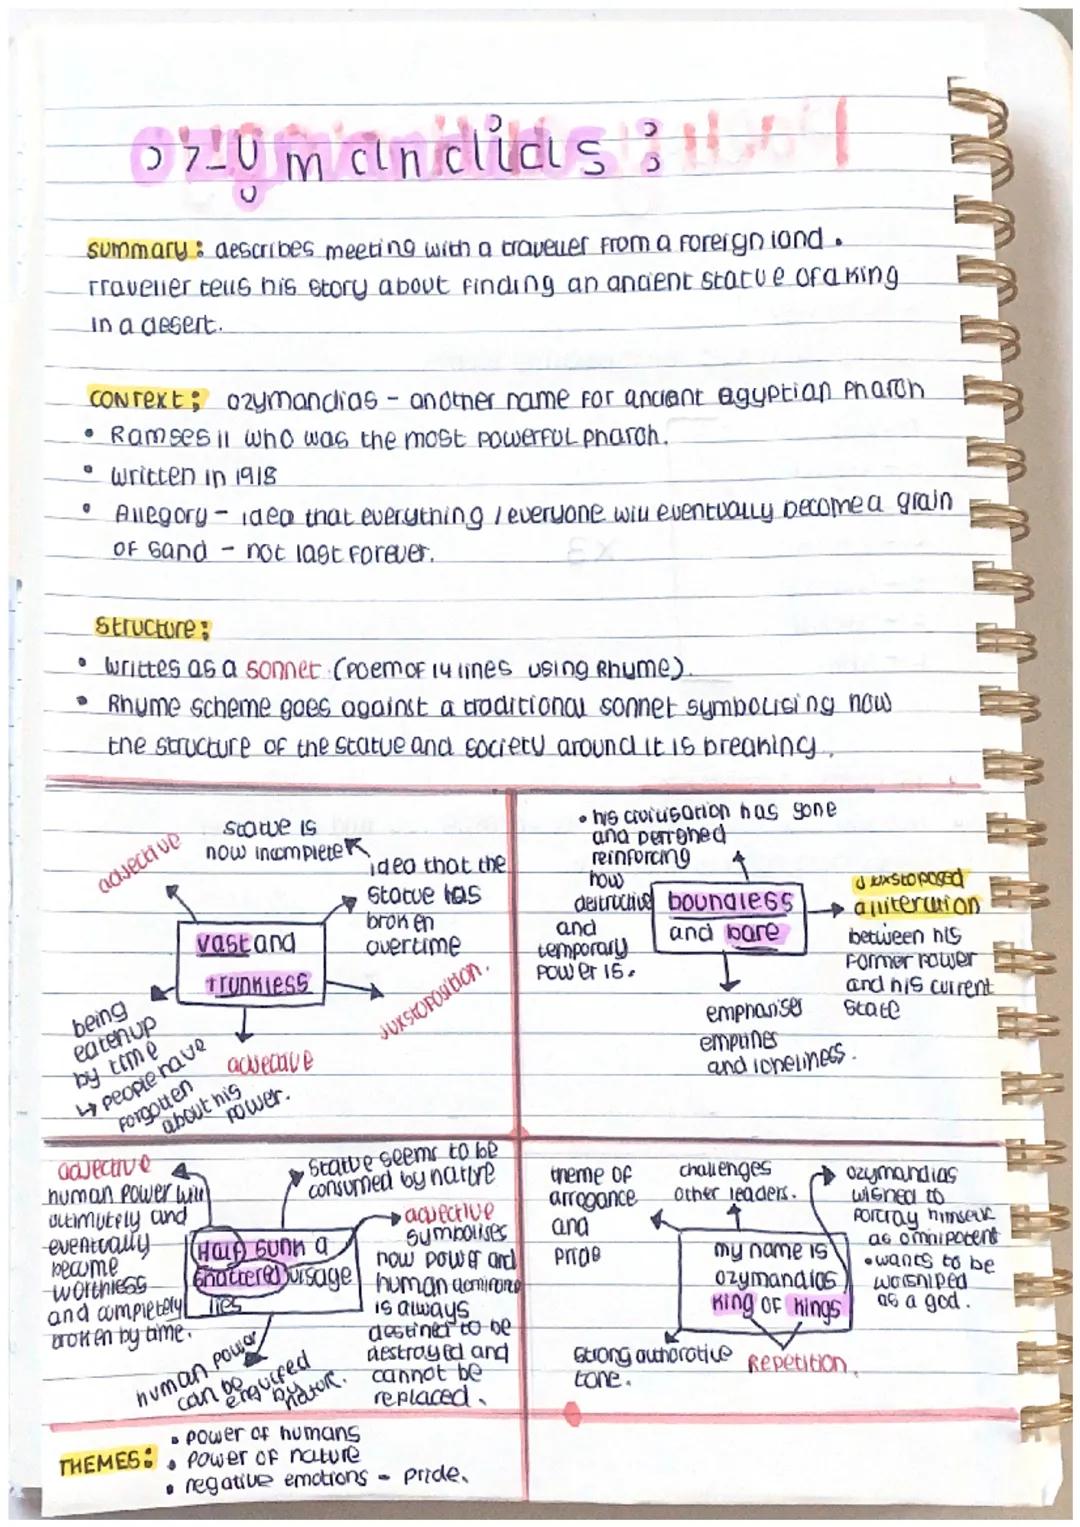 ozymandias :
summary : describes meeting with a traveller from a foreign land .
Traveller tells his story about finding an ancient statue of a king
in a desert.
context ; ozymandias - another name for ancient egyptian Pharoh
• Ramses ii who was the most powerful pharoh.
• written in 1918
• Allegory - idea that everything / everyone will eventually become a grain
of sand - not last forever.
structure :
• writtes as a sonnet (poem of 14 lines using Rhyme).
• Rhyme scheme goes against a traditional sonnet symbolising how
the structure of the statue and society around it is breaking .
adjective
statue is
now incomplete
idea that the
statue has
broken
overtime
vast and
trunkless
juxstoposition.
being
eaten up
by time
↳ people have
forgotten
about his
power.
adjective
• his civilisation has gone
and perished
reinforcing
how
destructive
and
temporary
power is.
boundless
and bare
juxstoposed
alliteration
between his
former power
and his current
state
emphasiser
emptines
and loneliness .
adjective
human power will
ultimutely and
eventually
become
worthless
and completely
broken by time.
statue seems to be
consumed by nature
Half sunk a
shattered visage
lies
adjective
symbolises
how power and
human dominance
is always
destined to be
destroyed and
cannot be
replaced .
human power
can be
engulfed
by
nature.
theme of
arrogance
and
pride
challenges
other leaders.
my name is
ozymandias
king of kings
ozymandias
wished to
portray himself
as omnipotent
• wants to be
worshiped
as a god .
strong authorotive
tone.
Repetition.
THEMES :
• power of humans
• power of nature
• negative emotions - pride.